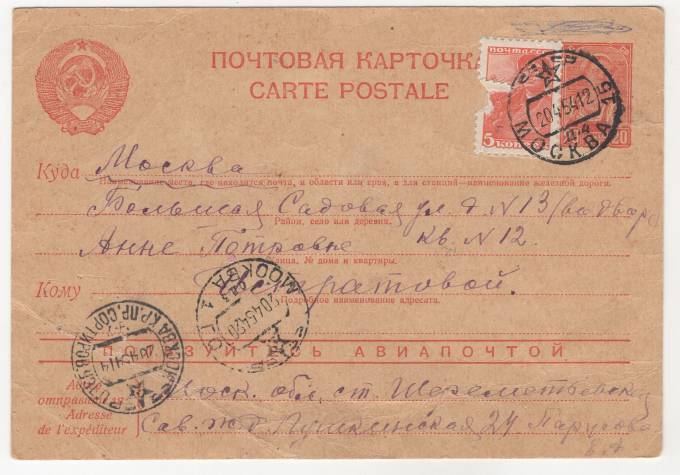 ПОЧТОВАЯ КАРТОЧКА
CARTE POSTALE
ПОЧТА СССР
5 КОП
20
МОСКВА
2045412
Куда Москва
Наименование места, где находится почта, и области или края, а для станций—наименование железной дороги.
Большая Садовая ул. д. N 13 (во двор
Район, село или деревня.
Анне Петровне кв. N 12.
Улица, № дома и квартиры.
Кому
Подробное наименование адресата.
МОСКВА
2045420
ПОЛЬЗУЙТЕСЬ АВИАПОЧТОЙ
Адрес отправителя
Моск. обл., ст. Шереметьевская
Adresse de l'expéditeur
Сав. ж. д. Пушкинская 24